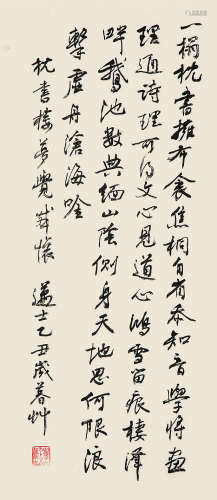 一榻枕書擁布衾焦桐自有忝知音學將畫
理通詩理可將文心見道心鴻雪留痕棲澤
畔鵝池數典緬山陰側身天地思何限浪
擊虛舟滄海唫
枕書樓夢覺感懷 邁士乙丑歲暮艸